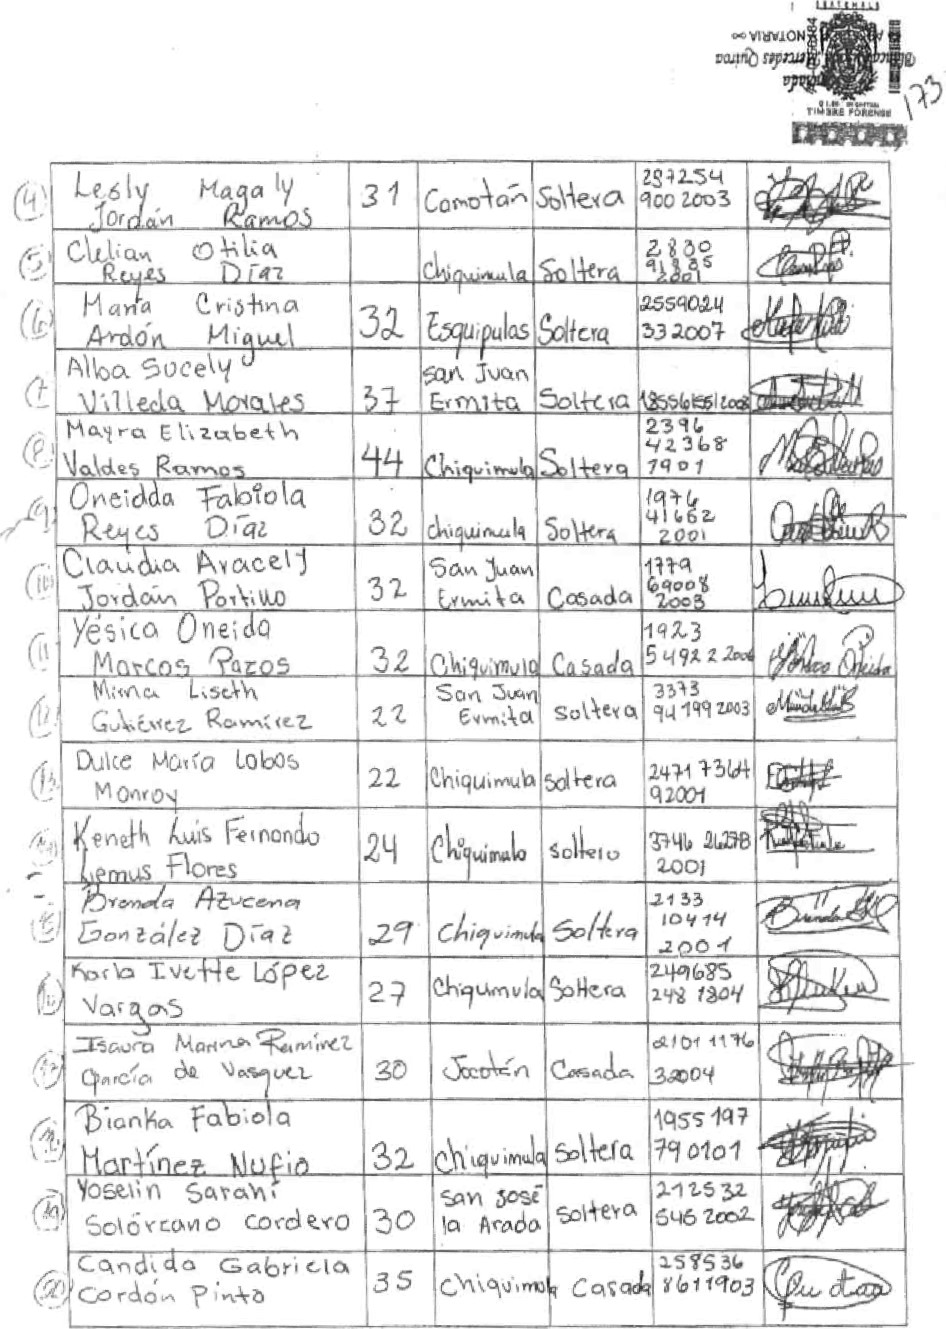 173
TIMBRE FORENSE
NOTARIA
Mercedes Quiroa
(4) Lesly Magaly Jordán Ramos 31 Camotán Soltera 287254 900 2003
(5) Clelian Otilia Reyes Díaz Chiquimula Soltera 2830 91885 2001
(6) María Cristina Ardón Miguel 32 Esquipulas Soltera 2559024 33 2007
(7) Alba Sucely Villeda Morales 37 San Juan Ermita Soltera
(8) Mayra Elizabeth Valdes Ramos 44 Chiquimula Soltera 2396 42368 1901
(9) Oneidda Fabiola Reyes Díaz 32 chiquimula Soltera 1976 41662 2001
(10) Claudia Aracely Jordán Portillo 32 San Juan Ermita Casada 1779 69008 2003
(11) Yésica Oneida Marcos Pazos 32 Chiquimula Casada 1923 54922 2006
(12) Mirna Liseth Gutiérrez Ramírez 22 San Juan Ermita Soltera 3373 94199 2003
(13) Dulce María Lobos Monroy 22 Chiquimula soltera 2471 7364 92001
Keneth Luis Fernando Lemus Flores 24 Chiquimula soltero 3746 26278 2001
Brenda Azucena González Díaz 29 Chiquimula Soltera 2133 10414 2001
(16) Karla Ivette López Vargas 27 Chiquimula Soltera 249685 248 1804
(17) Isaura Marina Ramírez García de Vasquez 30 Jocotán Casada 2101 1176 32004
Bianka Fabiola Martínez Nufio 32 Chiquimula Soltera 1955 197 790101
(19) Yoselin Sarahí Solórzano Cordero 30 San José la Arada Soltera 212532 545 2002
(20) Candida Gabriela Cordón Pinto 35 Chiquimula Casada 258536 8611903